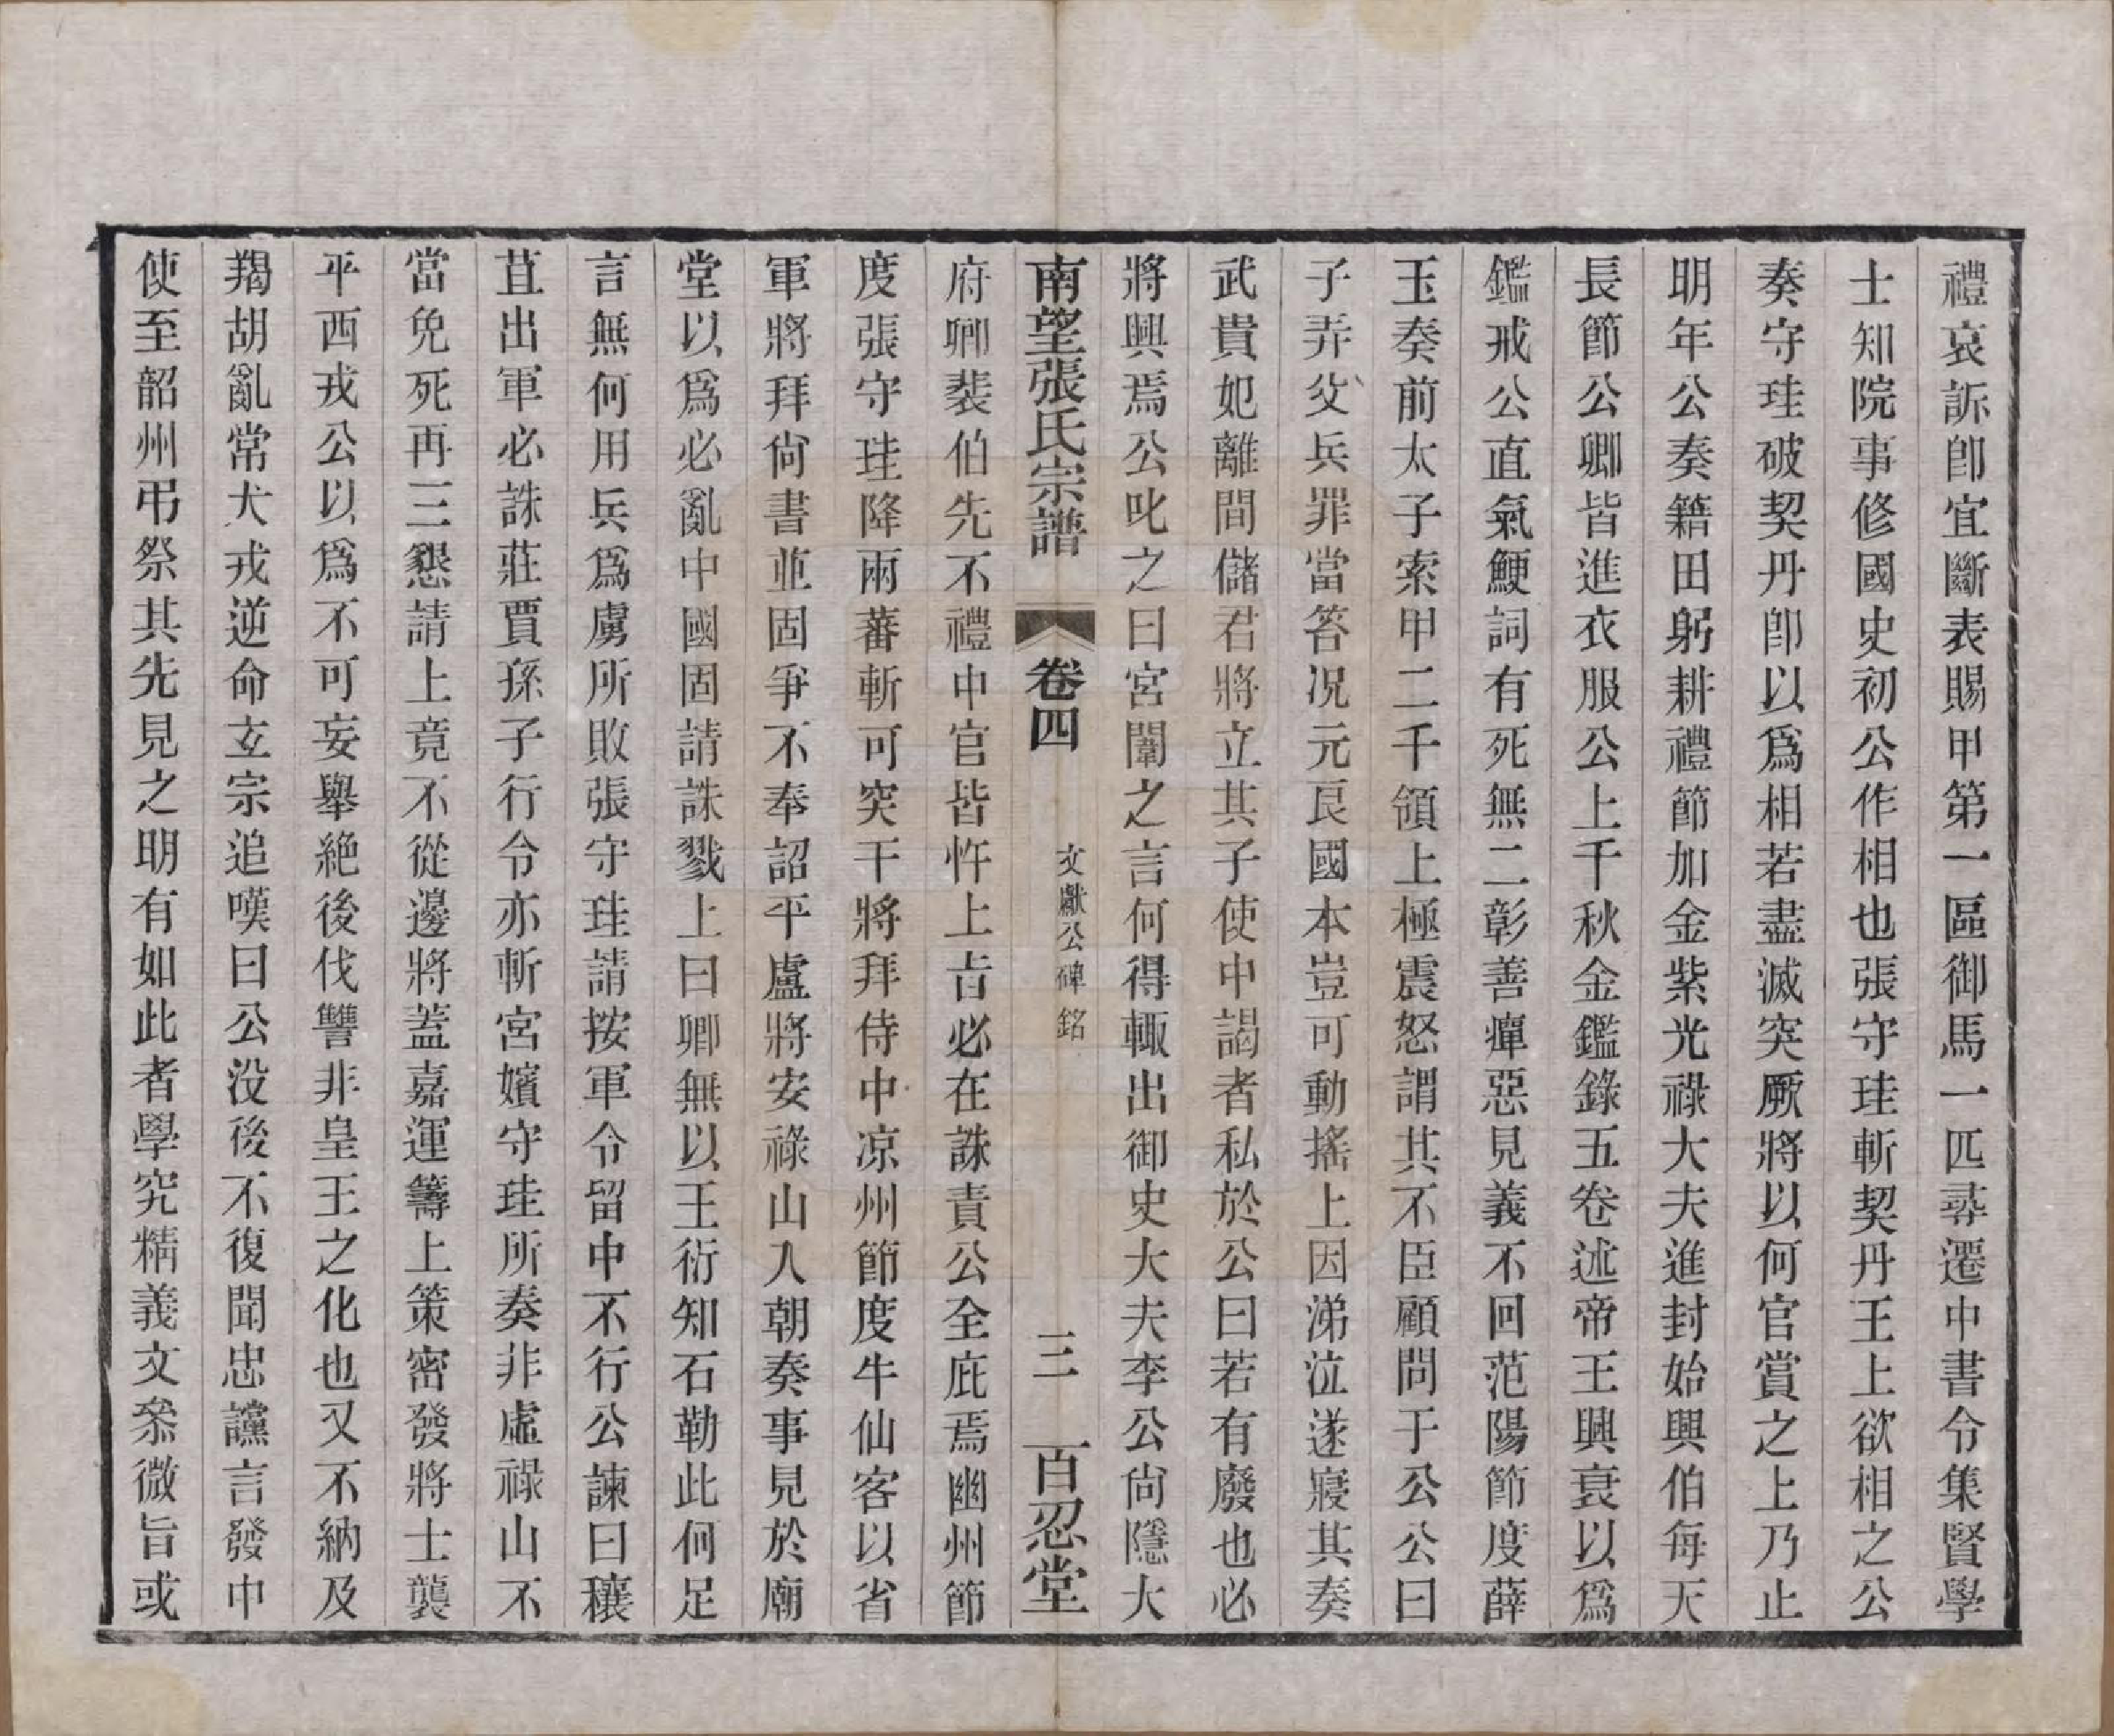 禮哀訴卽宜斷表賜甲第一區御馬一匹尋遷中書令集賢學
士知院事修國史初公作相也張守珪斬契丹王上欲相之公
奏守珪破契丹卽以爲相若盡滅突厥將以何官賞之上乃止
明年公奏籍田躬耕禮節加金紫光祿大夫進封始興伯每天
長節公卿皆進衣服公上千秋金鑑錄五卷述帝王興衰以爲
鑑戒公直氣鯁詞有死無二彰善癉惡見義不回范陽節度薛
玉奏前太子索甲二千領上極震怒謂其不臣顧問于公公曰
子弄父兵罪當笞况元良國本豈可動搖上因涕泣遂寢其奏
武貴妃離間儲君將立其子使中謁者私於公曰若有廢也必
將興焉公叱之曰宮闈之言何得輙出御史大夫李公尙隱大
南望張氏宗譜 卷四 文獻公碑銘 三 百忍堂
府卿裴伯先不禮中官皆忤上㫖必在誅責公全庇焉幽州節
度張守珪降兩蕃斬可突干將拜侍中凉州節度牛仙客以省
軍將拜尙書並固爭不奉詔平盧將安祿山入朝奏事見於廟
堂以爲必亂中國固請誅戮上曰卿無以王衍知石勒此何足
言無何用兵爲虜所敗張守珪請按軍令留中不行公諫曰穰
苴出軍必誅莊賈孫子行令亦斬宮嬪守珪所奏非虛祿山不
當免死再三懇請上竟不從邊將蓋嘉運籌上策密發將士襲
平西戎公以爲不可妄舉絕後伐讐非皇王之化也又不納及
羯胡亂常犬戎逆命玄宗追嘆曰公没後不復聞忠讜言發中
使至韶州弔祭其先見之明有如此者學究精義文叅微旨或